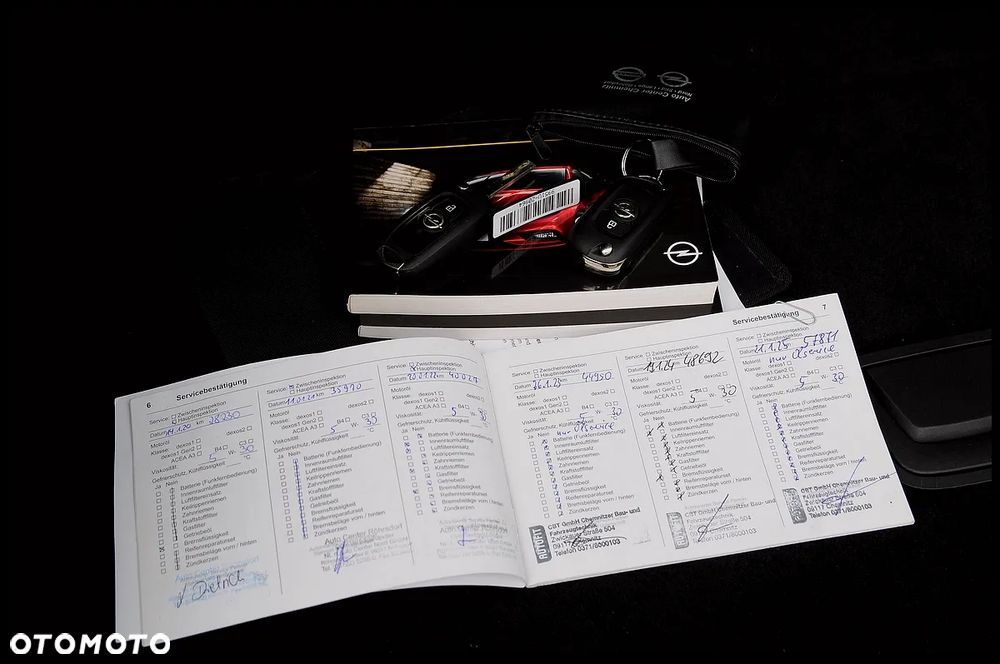 Auto Center Chemnitz
6
Servicebestätigung
Service: Zwischeninspektion
Hauptinspektion
Datum km
Motoröl
Klasse: dexos1 dexos2
dexos1 Gen2 C3
ACEA A3 B4
Viskosität: 5 W- 30
Gefrierschutz, Kühlflüssigkeit °C
Ja Nein
Batterie (Funkfernbedienung)
Innenraumluftfilter
Luftfiltereinsatz
Keilrippenriemen
Zahnriemen
Kraftstofffilter
Gasfilter
Getriebeöl
Bremsflüssigkeit
Reifenreparaturset
Bremsbeläge vorn / hinten
Zündkerzen
Service: Zwischeninspektion
Hauptinspektion
Datum 11.01.21 km 35970
Motoröl
Klasse: dexos1 dexos2
dexos1 Gen2 C3
ACEA A3 B4
Viskosität: 5 W- 30
Gefrierschutz, Kühlflüssigkeit °C
Ja Nein
Batterie (Funkfernbedienung)
Innenraumluftfilter
Luftfiltereinsatz
Keilrippenriemen
Zahnriemen
Kraftstofffilter
Gasfilter
Getriebeöl
Bremsflüssigkeit
Reifenreparaturset
Bremsbeläge vorn / hinten
Zündkerzen
Auto Center Röhrsdorf
Service: Zwischeninspektion
Hauptinspektion
Datum km
Motoröl
Klasse: dexos1
dexos1 Gen2
ACEA A3 B4
Viskosität: 5
Gefrierschutz, Kühlflüssigkeit
Ja Nein
Batterie (Funkfernbedienung)
Innenraumluftfilter
Luftfiltereinsatz
Keilrippenriemen
Zahnriemen
Kraftstofffilter
Gasfilter
Getriebeöl
Bremsflüssigkeit
Reifenreparaturset
Bremsbeläge vorn / hinten
Zündkerzen
Servicebestätigung
7
Service: Zwischeninspektion
Hauptinspektion
Datum km 44950
Motoröl
Klasse: dexos1 dexos2
dexos1 Gen2 C3
ACEA A3 B4
Viskosität: 5 W- 30
Gefrierschutz, Kühlflüssigkeit °C
Ja Nein nur Ölservice
Batterie (Funkfernbedienung)
Innenraumluftfilter
Luftfiltereinsatz
Keilrippenriemen
Zahnriemen
Kraftstofffilter
Gasfilter
Getriebeöl
Bremsflüssigkeit
Reifenreparaturset
Bremsbeläge vorn / hinten
Zündkerzen
AUTOFIT
CBT GmbH Chemnitzer Bau- und
Fahrzeugtechnik
Zwickauer Straße 504
09117 Chemnitz
Telefon 0371/8000103
Service: Zwischeninspektion
Hauptinspektion
Datum km 48692
Motoröl
Klasse: dexos1 dexos2
dexos1 Gen2 C3
ACEA A3 B4
Viskosität: 5 W- 30
Gefrierschutz, Kühlflüssigkeit °C
Ja Nein
Batterie (Funkfernbedienung)
Innenraumluftfilter
Luftfiltereinsatz
Keilrippenriemen
Zahnriemen
Kraftstofffilter
Gasfilter
Getriebeöl
Bremsflüssigkeit
Reifenreparaturset
Bremsbeläge vorn / hinten
Zündkerzen
CBT GmbH Chemnitzer Bau- und
Fahrzeugtechnik
Zwickauer Straße 504
09117 Chemnitz
Telefon 0371/8000103
Service: Zwischeninspektion
Hauptinspektion
Datum 21.1.25 57871
Motoröl nur Ölservice
Klasse: dexos1 dexos2
dexos1 Gen2 C3
ACEA A3 B4
Viskosität: 5 W- 30
Gefrierschutz, Kühlflüssigkeit °C
Ja Nein
Batterie (Funkfernbedienung)
Innenraumluftfilter
Luftfiltereinsatz
Keilrippenriemen
Zahnriemen
Kraftstofffilter
Gasfilter
Getriebeöl
Bremsflüssigkeit
Reifenreparaturset
Bremsbeläge vorn / hinten
Zündkerzen
CBT GmbH Chemnitzer Bau- und
Fahrzeugtechnik
Zwickauer Straße 504
09117 Chemnitz
Telefon 0371/8000103
OTOMOTO